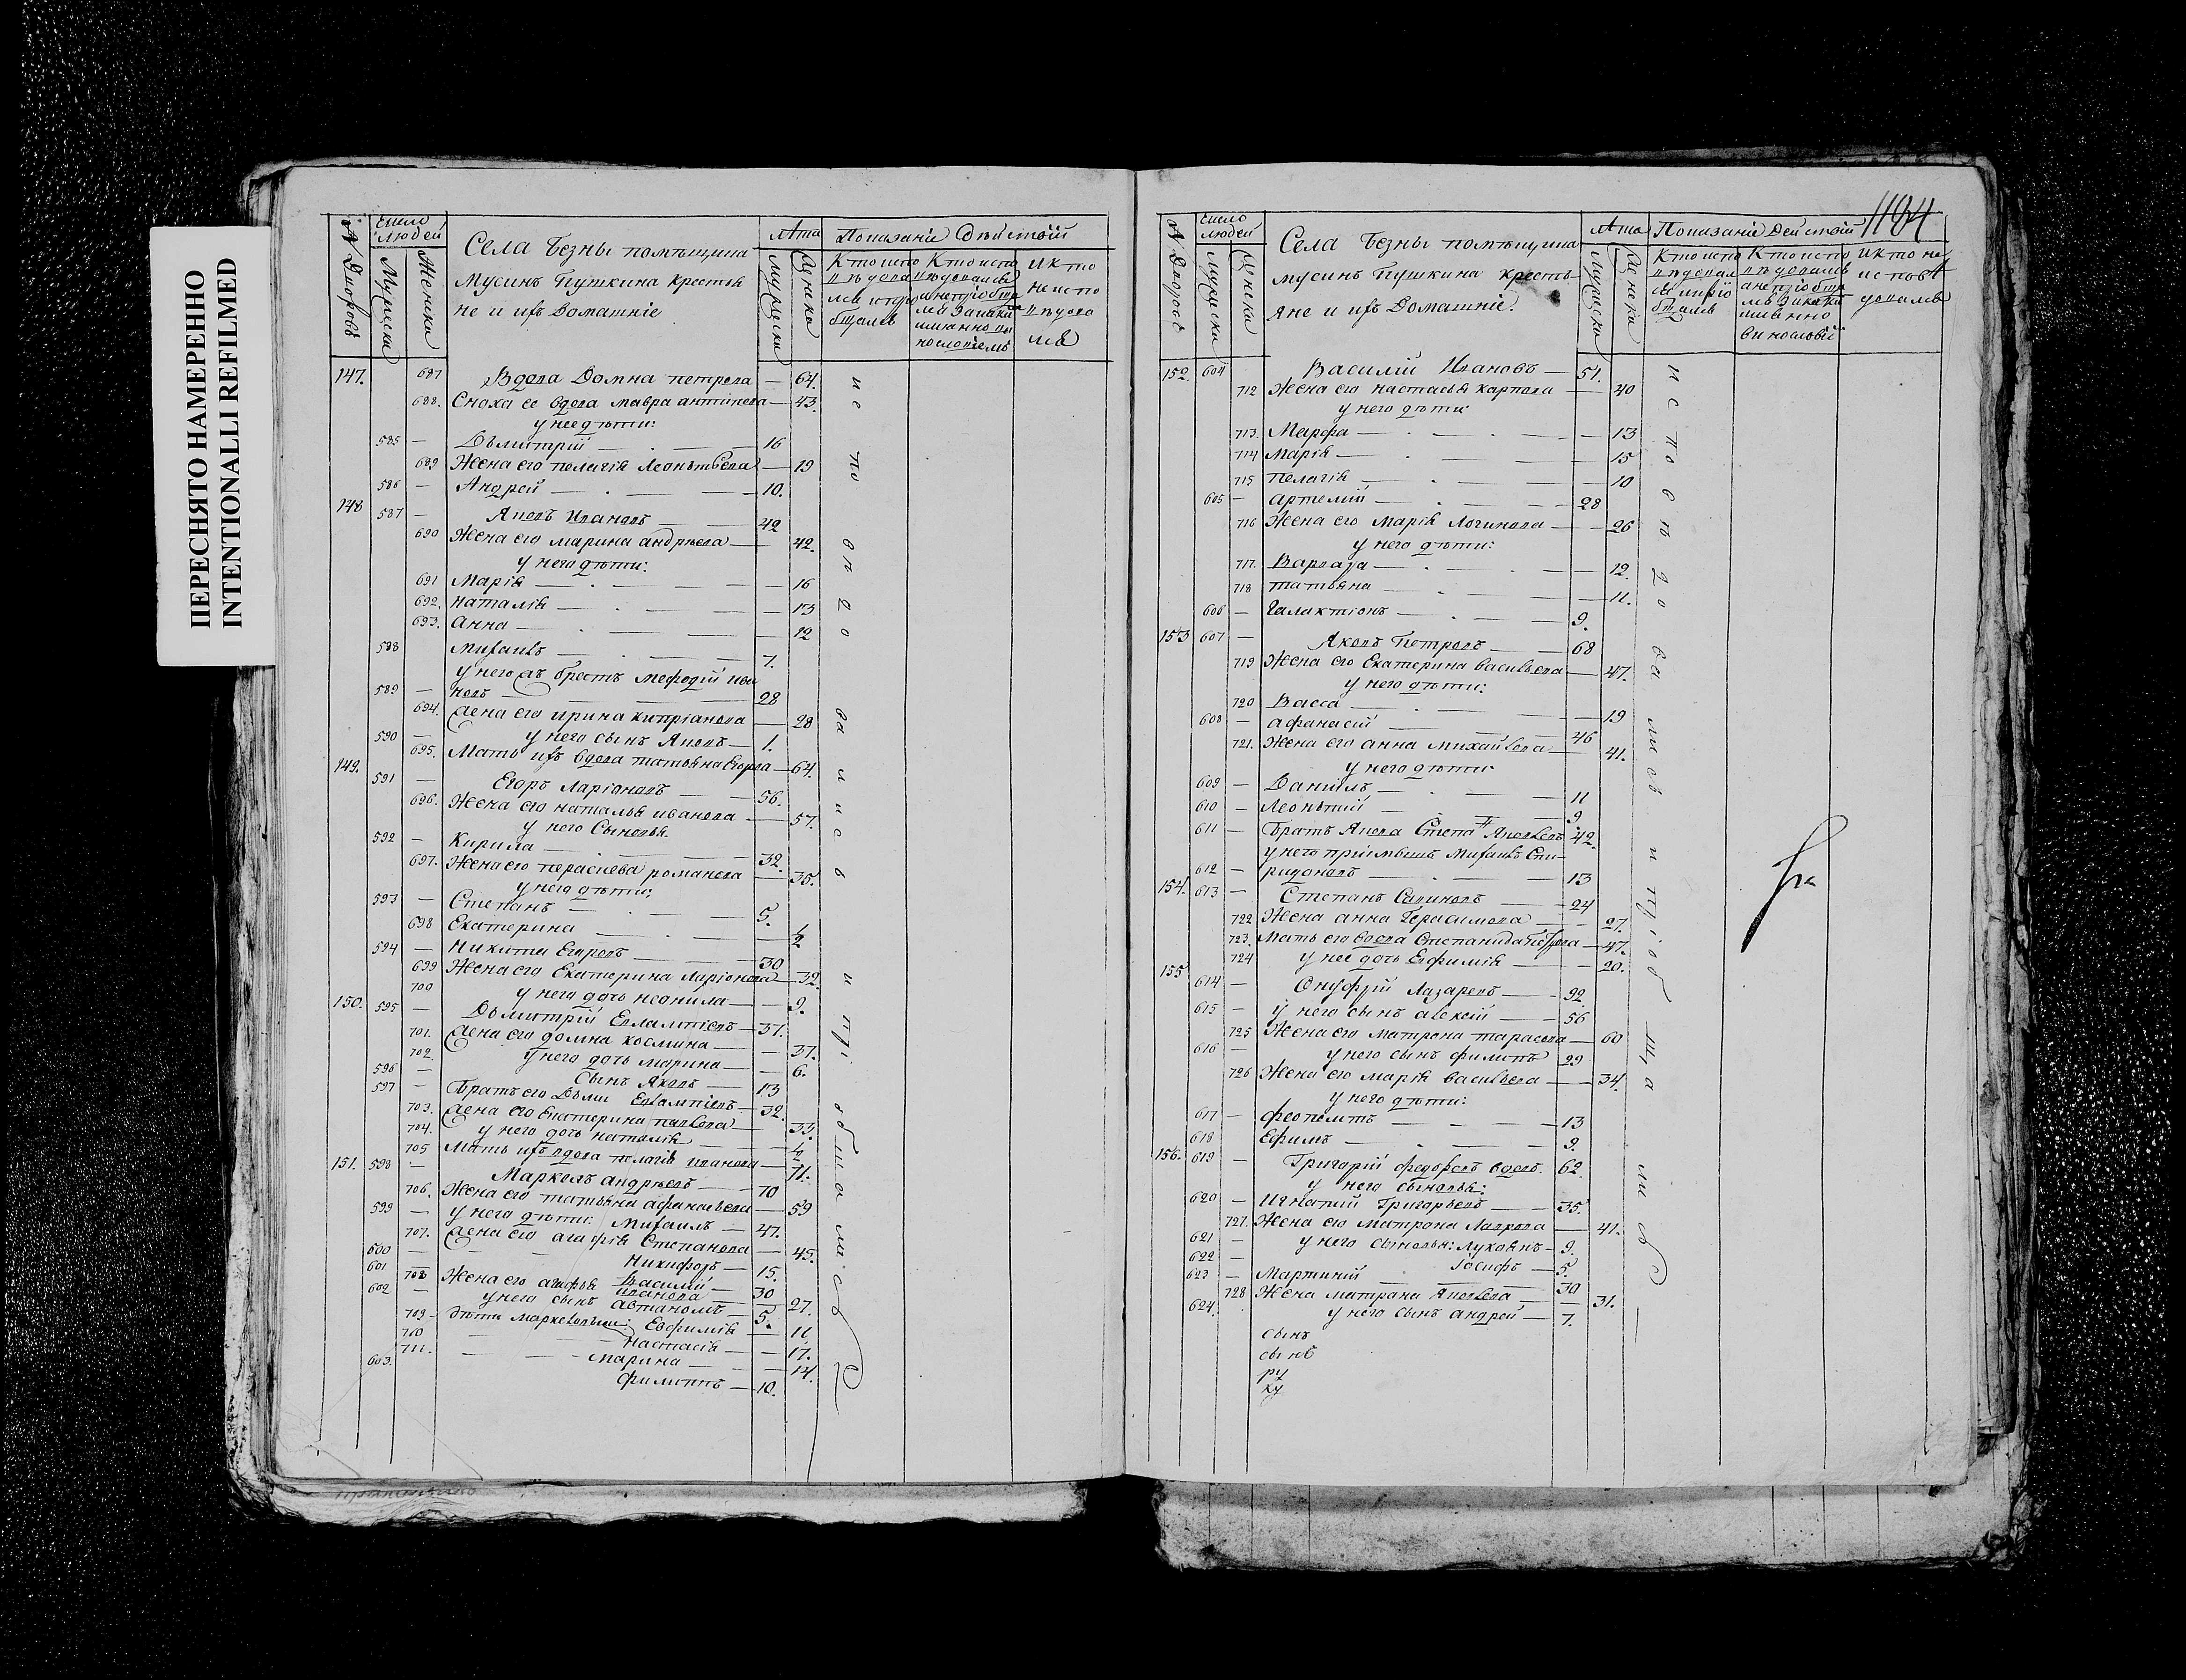 ПЕРЕСНЯТО НАМЕРЕННО
INTENTIONALLI REFILMED
№ Дворовъ
Число людей
Мужеска
Женска
Села Безны помѣщика
Мусинъ Пушкина крестья
не и ихъ Домашніе
Лѣта
Мужеска
Женска
Показаніе Дѣйствій
Кто испо
Кто испо
И кто
не испо
147. 687 Вдова Домна петрова — 64.
688. Сноха ее вдова мавра антипова — 43.
у нее дѣти:
585 — Дьмитрій — 16
689 Жена его пелагія Леонтьева — 19
586 — Андрей — 10.
148 587 — Яковъ Ивановъ 42
690 Жена его марина андрѣева — 42.
у него дѣти:
691 Марія — 16
692. наталія — 13
693. Анна — 12
588 Михаилъ — 7.
у него ... братъ Мефодій ива
589 — новъ — 28
694. Жена его ирина кипріанова — 28
590 — у него сынъ Яковъ — 1.
695. Мать ихъ вдова татьяна Егорова — 64.
149. 591 — Егоръ Ларіоновъ — 56.
696. Жена его наталья иванова — 57.
у него Сыновья
592 — Кирила — 32.
697. Жена его парасиева романова — 35.
у него дѣти:
593 — Степанъ — 5.
698 Екатерина — ½
594 — Никита Егоровъ — 30
699 Жена его Екатерина Ларіонова — 32
700 у него дочь неонила — 9.
150. 595 — Дьмитрій Евлампіевъ — 37.
701. Жена его домна космина — 37.
702. у него дочь марина — 6.
596 — Сынъ Яковъ — 13
597 — Братъ его Дьми Евлампіевъ — 32.
703. Жена его Екатерина павлова — 33.
704. у него дочь наталія — ½
705 Мать ихъ вдова пелагія иванова — 71.
151. 598 — Маркелъ андрѣевъ — 70
706. Жена его татьяна афанасьева — 59
599 — у него дѣти: Михаилъ — 47.
707. Жена его агафія Степанова — 45.
600 — Никифоръ — 15.
601 — Василій — 30
708 Жена его агафья иванова — 27.
602 — у него сынъ автаномъ — 5.
709 — дѣти маркеловы: Евфимія — 11
710 — настасія — 17.
711. — марина — 14.
603. филиппъ — 10.
исповѣдовались и пріобщались
1104
№ Дворовъ
Число людей
Мужеска
Женска
Села Безны помѣщика
мусинъ Пушкина кресть
яне и ихъ Домашніе.
Лѣта
Мужеска
Женска
Показаніе Дей ствій
Кто испо
Кто испо
И кто не
152. 604 Василій Ивановъ — 51.
712 Жена его настасья карпова — 40
у него дѣти:
713. Марфа — 13
714 Марія — 15
715 пелагія — 10
605 — артемій — 28
716 Жена его Марія Логинова — 26
у него дѣти:
717. Варвара — 12.
718 татьяна — 11.
606 — Галактіонъ — 9.
153 607 — Яковъ Петровъ — 68
719 Жена его Екатерина васильева — 47.
у него дѣти:
720 Васса — 19
608 — афанасій — 46
721. Жена его анна михайлова — 41.
у него дѣти:
609 — Даніилъ — 11
610 — Леонтій — 9.
611 — Братъ Якова Степа Яковлевъ 42.
у него пріимышъ Михаилъ Спи-
612 — ридоновъ — 13
154. 613 — Степанъ Савиновъ — 24
722 Жена анна Герасимова — 27.
723. Мать его вдова Степанида Петрова — 47.
724 у нее дочь Евфимія — 20.
155 614 — Онуфрій Лазаревъ — 92
615 — у него сынъ алексій — 56
725 Жена его матрона тарасова — 60
616 — у него сынъ филипъ 29
726 Жена его марія васильева — 34.
у него дѣти:
617 — феопемптъ — 13
618 Ефимъ — 9.
156. 619 — Григорій федоровъ вдовъ. 62
у него сыновья:
620 — Игнатій Григорьевъ — 35.
727. Жена его Матрона Лаврова — 41.
621 — у него сыновья: Лукоянъ — 9.
622 — Іосифъ — 5.
623 — Мартиній — 30
728 Жена матрона Яковлева — 31.
624. у него сынъ андрей — 7.
сынъ
сынъ
ру
ку
исповѣдовались и пріобщались